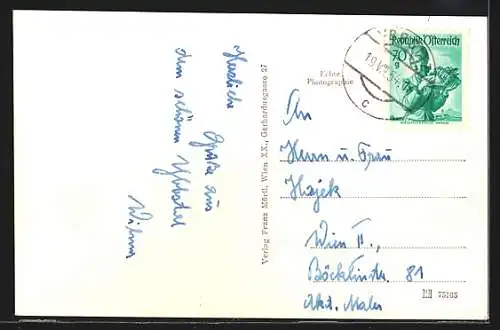 Herzliche
Grüße aus
dem schönen Ybbstal
Wilma
Verlag Franz Mörtl, Wien XX., Gerhardusgasse 27
Echte
Photographie
Republik Österreich
70
g
C
An
Herrn u. Frau
Hajek
Wien II.,
Böcklinstr. 81
Akd. Maler
75165